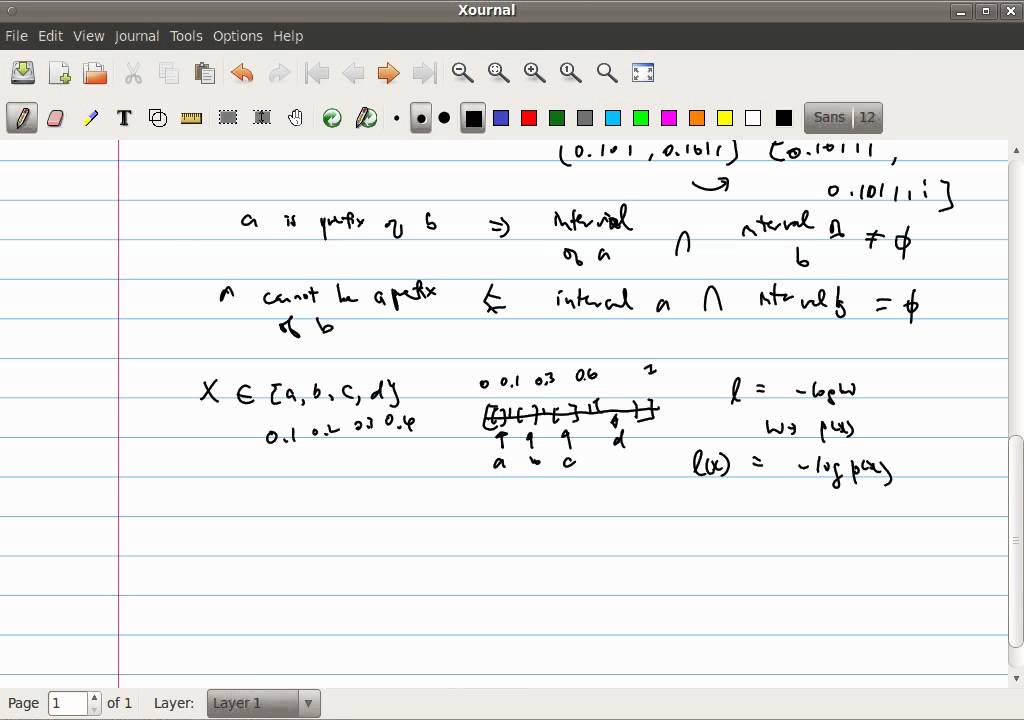 Xournal
File Edit View Journal Tools Options Help
Sans 12
[0.101, 0.1011] [0.10111,
0.10111 1]
a is prefix of b ⇒ interval of a ∩ interval of b ≠ ϕ
a cannot be a prefix of b ⇐ interval a ∩ interval b = ϕ
X ∈ {a, b, c, d}
0.1 0.2 0.3 0.4
0 0.1 0.3 0.6 1
a b c d
l = -log w
w → p(x)
l(x) = -log p(x)
Page 1 of 1 Layer: Layer 1